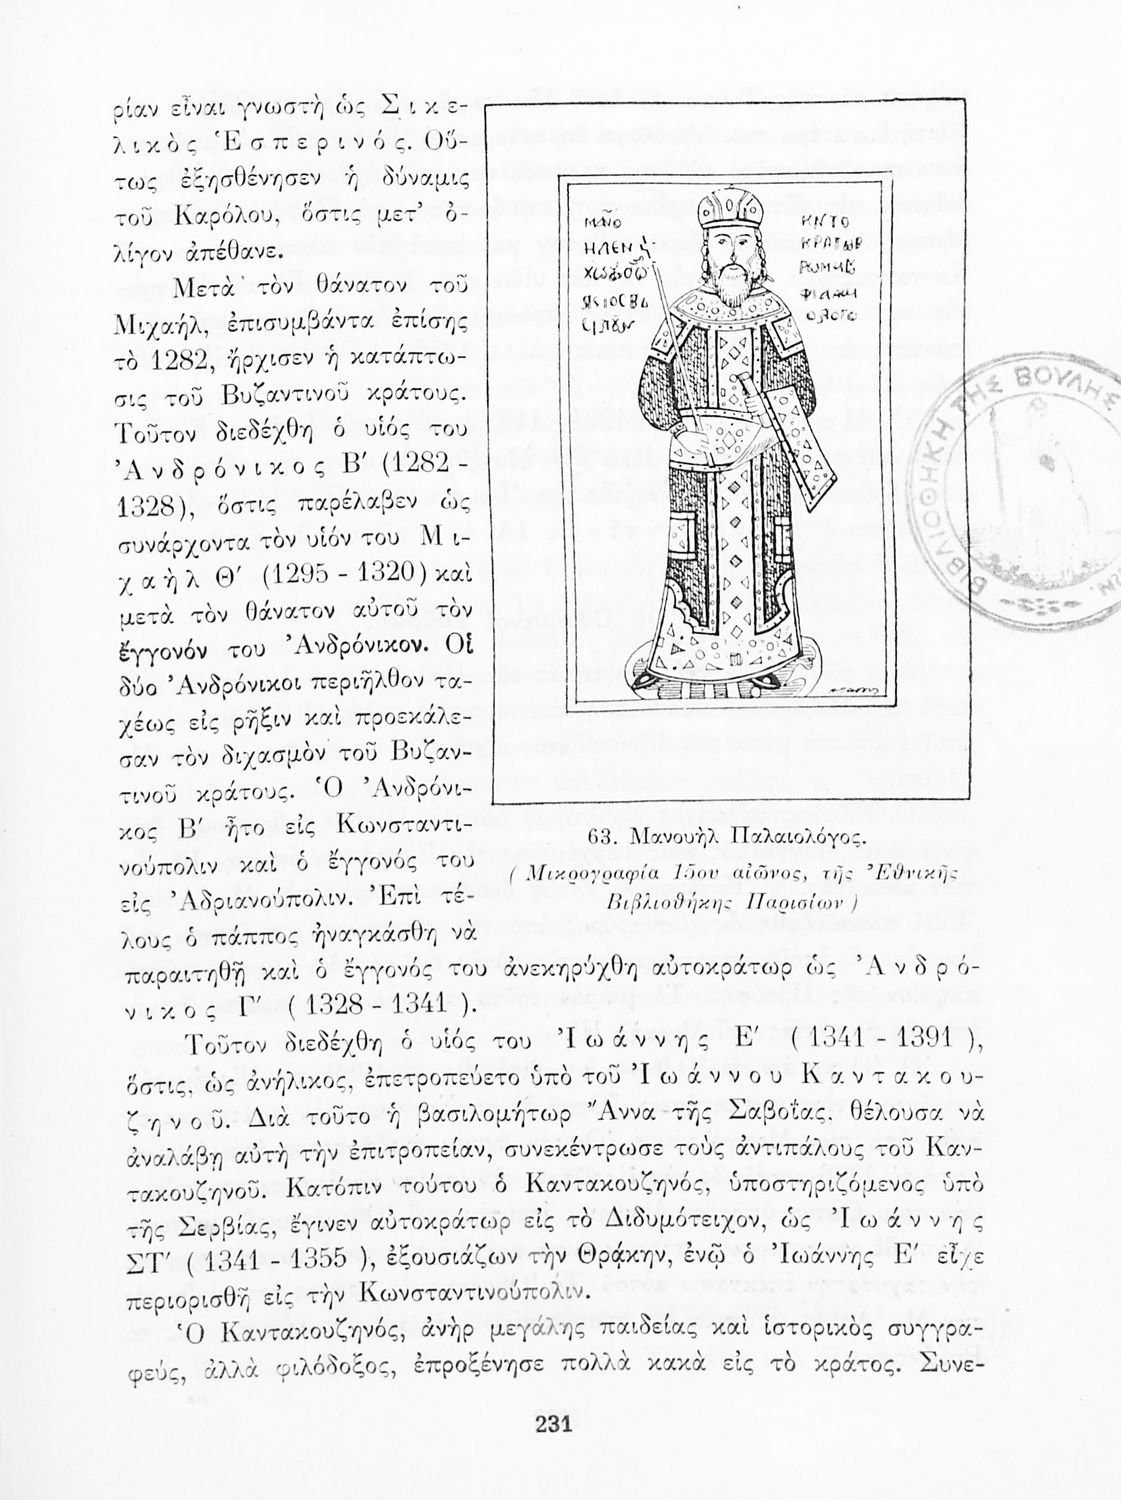 ρίαν εἶναι γνωστὴ ὡς Σικε-
λικὸς Ἑσπερινός. Οὕ-
τως ἐξησθένησεν ἡ δύναμις
τοῦ Καρόλου, ὅστις μετ’ ὀ-
λίγον ἀπέθανε.
Μετὰ τὸν θάνατον τοῦ
Μιχαήλ, ἐπισυμβάντα ἐπίσης
τὸ 1282, ἤρχισεν ἡ κατάπτω-
σις τοῦ Βυζαντινοῦ κράτους.
Τοῦτον διεδέχθη ὁ υἱός του
Ἀνδρόνικος Β′ (1282 -
1328), ὅστις παρέλαβεν ὡς
συνάρχοντα τὸν υἱόν του Μι-
χαὴλ Θ′ (1295 - 1320) καὶ
μετὰ τὸν θάνατον αὐτοῦ τὸν
ἔγγονόν του Ἀνδρόνικον. Οἱ
δύο Ἀνδρόνικοι περιῆλθον τα-
χέως εἰς ρῆξιν καὶ προεκάλε-
σαν τὸν διχασμὸν τοῦ Βυζαν-
τινοῦ κράτους. Ὁ Ἀνδρόνι-
κος Β′ ἦτο εἰς Κωνσταντι-
νούπολιν καὶ ὁ ἔγγονός του
εἰς Ἀδριανούπολιν. Ἐπὶ τέ-
λους ὁ πάππος ἠναγκάσθη νὰ
παραιτηθῇ καὶ ὁ ἔγγονός του ἀνεκηρύχθη αὐτοκράτωρ ὡς Ἀνδρό-
νικος Γ′ ( 1328 - 1341 ).
Τοῦτον διεδέχθη ὁ υἱός του Ἰωάννης Ε′ ( 1341 - 1391 ),
ὅστις, ὡς ἀνήλικος, ἐπετροπεύετο ὑπὸ τοῦ Ἰωάννου Καντακου-
ζηνοῦ. Διὰ τοῦτο ἡ βασιλομήτωρ Ἄννα τῆς Σαβοΐας, θέλουσα νὰ
ἀναλάβῃ αὐτὴ τὴν ἐπιτροπείαν, συνεκέντρωσε τοὺς ἀντιπάλους τοῦ Καν-
τακουζηνοῦ. Κατόπιν τούτου ὁ Καντακουζηνός, ὑποστηριζόμενος ὑπὸ
τῆς Σερβίας, ἔγινεν αὐτοκράτωρ εἰς τὸ Διδυμότειχον, ὡς Ἰωάννης
ΣΤ′ ( 1341 - 1355 ), ἐξουσιάζων τὴν Θρᾴκην, ἐνῷ ὁ Ἰωάννης Ε′ εἶχε
περιορισθῆ εἰς τὴν Κωνσταντινούπολιν.
Ὁ Καντακουζηνός, ἀνὴρ μεγάλης παιδείας καὶ ἱστορικὸς συγγρα-
φεύς, ἀλλὰ φιλόδοξος, ἐπροξένησε πολλὰ κακὰ εἰς τὸ κράτος. Συνε-
63. Μανουὴλ Παλαιολόγος.
( Μικρογραφία 15ου αἰῶνος, τῆς Ἐθνικῆς
Βιβλιοθήκης Παρισίων )
ΒΙΒΛΙΟΘΗΚΗ ΤΗΣ ΒΟΥΛΗΣ
231